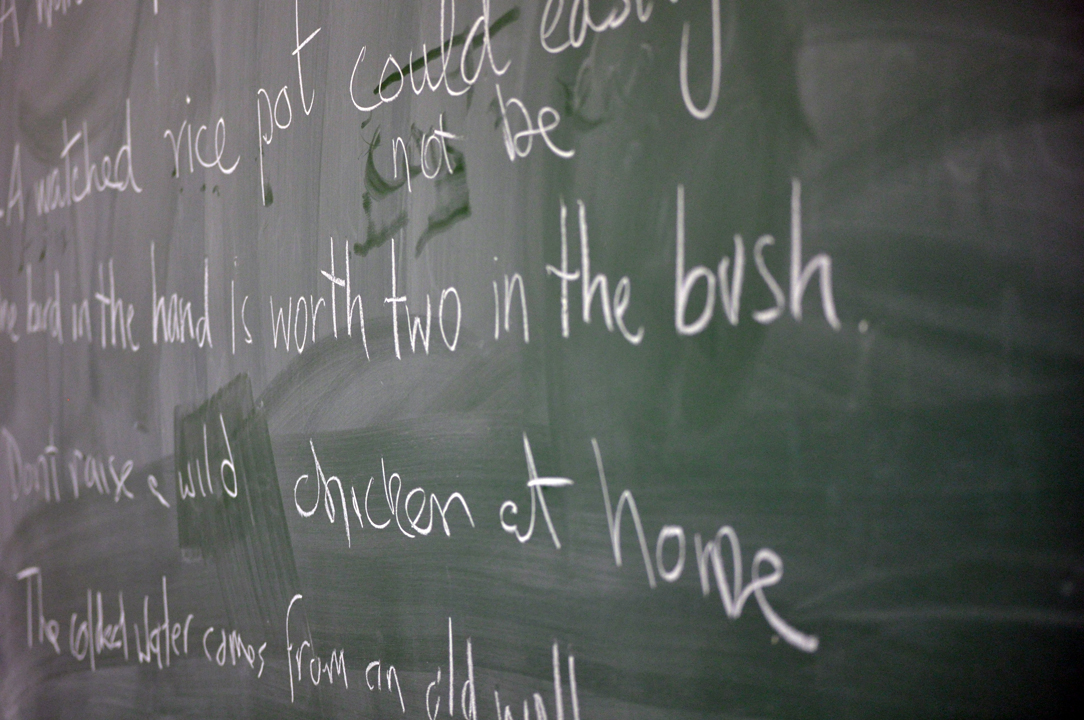 A watched rice pot could easily
not be
bird in the hand is worth two in the bush.
Don't raise a wild chicken at home
The coldest water comes from an old well